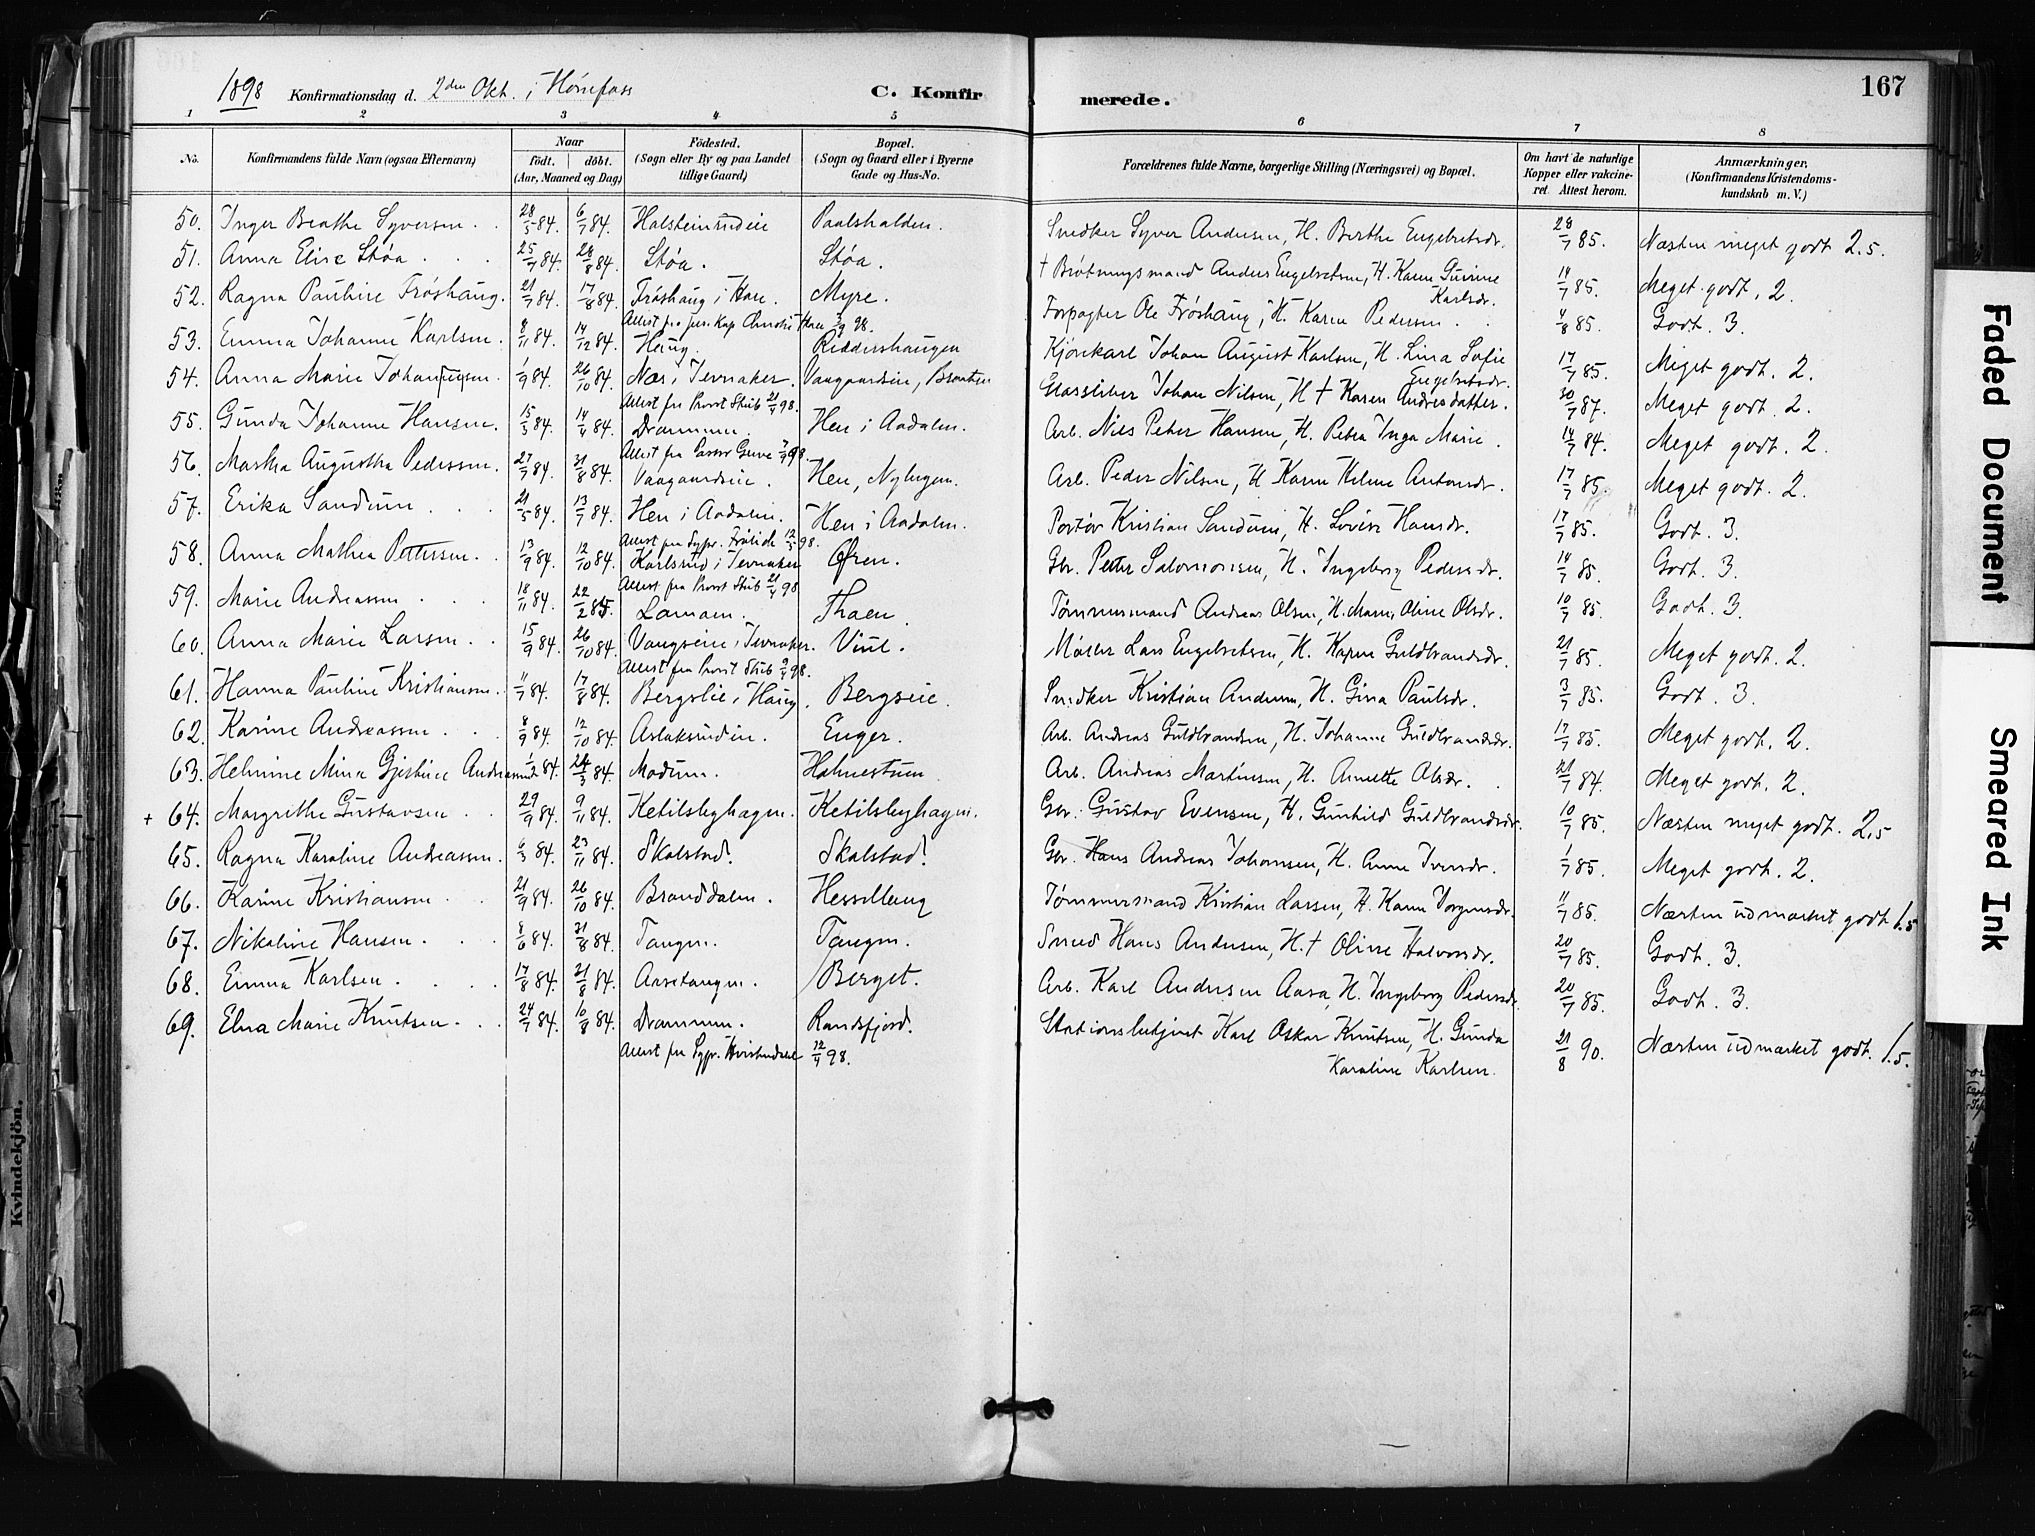 167
1898 Konfirmationsdag d. 2den Okt. i Hønefoss C. Konfirmerede.
1 2 3 4 5 6 7 8
No. Konfirmandens fulde Navn (ogsaa Efternavn) Naar födt. döbt. (Aar, Maaned og Dag) Födested. (Sogn eller By og paa Landet tillige Gaard) Bopæl. (Sogn og Gaard eller i Byerne Gade og Hus-No. Forældrenes fulde Navne, borgerlige Stilling (Næringsvei) og Bopæl. Om havt de naturlige Kopper eller vakcineret. Attest herom. Anmærkninger. (Konfirmandens Kristendomskundskab m. V.)
50. Inger Beathe Syversen 28/5 84. 6/7 84. Halsteinrudeie Paalshalden. Snedker Syver Andersen, H. Berthe Engebretsdr. 28/7 85. Næsten meget godt 2.5.
51. Anna Elise Støa 25/7 84. 24/8 84. Støa. Støa. † Brøtningsmand Anders Engebretsen, H. Karen Gurine Karlsdr. 14/7 85. Meget godt. 2.
52. Ragna Pauline Frøshaug. 21/7 84. 17/8 84. Frøshaug i Hole. Myre. Forpagter Ole Frøshaug, H. Karen Pedersen 4/8 85. Godt. 3.
53. Emma Johanne Karlsen. 8/11 84. 14/12 84. Haug. Riddershaugen Kjørekarl Johan August Karlsen, H. Lina Sofie Engebretsdr. 17/7 85. Meget godt. 2.
54. Anna Marie Johannesen. 1/9 84. 26/10 84. Næs i Jevnaker. Vaagaardseie, Glassliber Johan Nilsen, H † Karen Andresdatter. 30/7 87. Meget godt. 2.
Attest fra Provst Stub 21/4 98.
55. Gunda Johanne Hansen. 15/3 84. 14/4 84. Drammen. Hen i Aadalen. Arb. Niels Peter Hansen, H. Petra Inga Marie. 14/7 84. Meget godt. 2.
56. Martha Augustha Pedersen. 27/7 84. 31/8 84. Vaagaardseie. Hen, Nyhagen. Arb. Peder Nilsen, H Karen Helene Antonsdr. 17/7 85. Meget godt. 2.
57. Erika Sandum 21/5 84. 13/7 84. Hen i Aadalen. Hen i Aadalen. Portør Kristian Sandum, H. Lovise Hansdr. 17/7 85. Godt. 3.
58. Anna Mathea Pettersen. 13/9 84. 12/10 84. Karlsrud i Jevnaker Øren. Gbr. Petter Salomonsen, H. Ingeborg Pedersdr. 14/7 85. Godt. 3.
Attest fra Provst Stub 21/4 98
59. Marie Andreassen 18/11 84. 22/2 85. Lamoen. Thoen. Tømmermand Andreas Olsen, H. Maren Oline Olsdr. 10/7 85. Godt. 3.
60. Anna Marie Larsen. 15/9 84. 26/10 84. Vangseie i Jevnaker. Viul. Møller Lars Engebretsen, H. Karen Guldbrandsdr. 21/7 85. Meget godt. 2.
61. Hanna Pauline Kristiansen. 11/7 84. 17/8 84. Bergslie i Haug. Bergseie. Snedker Kristian Andersen, H. Gina Paulsdr. 3/7 85. Godt. 3
62. Karine Andreassen 8/9 84. 12/10 84. Aslaksrudeie. Enger. Arb. Andreas Guldbrandsen, H. Johanne Guldbrandsdr. 17/7 85. Meget godt. 2.
63. Helmine Mina Gjestine Andreassen 1/2 84. 24/3 84. Modum. Holmestuen Arb. Andreas Martinsen, H. Annette Olsdr. 21/7 84. Meget godt. 2.
+ 64. Margrithe Gustavsen 29/9 84. 9/11 84. Ketilsbyhagen. Ketilsbyhagen. Gbr. Gustav Evensen, H. Gunhild Guldbrandsdr. 10/7 85. Næsten meget godt. 2.5
65. Ragna Karoline Andreassen. 6/3 84. 23/11 84. Skolstad. Skolstad. Gbr. Hans Andreas Johansen, H. Anne Iversdr. 1/7 85. Meget godt. 2.
66. Karine Kristiansen 21/9 84. 26/10 84. Branddalen. Hesselberg Tømmermand Kristian Larsen, H. Karen Jørgensdr. 11/7 85. Næsten udmærket godt 1.5
67. Nikoline Hansen. 8/6 84. 31/8 84. Tangen. Tangen. Smed Hans Andersen, H. † Oline Halvorsdr. 20/7 85. Godt. 3.
68. Emma Karlsen 17/8 84. 21/8 84. Aasetangen. Berget. Arb. Karl Andersen Aasa, H. Ingeborg Pedersdr. 20/7 85. Godt. 3.
69. Elna Marie Knutsen. 24/7 84. 10/8 84. Drammen. Randsfjord. Stationsbetjent Karl Oskar Knutsen, H. Gunda Karoline Karlsen. 21/8 90. Næsten udmærket godt. 1.5.
Attest fra Sgpr. 12/4 98.
Kvindekjön.
Faded Document
Smeared Ink